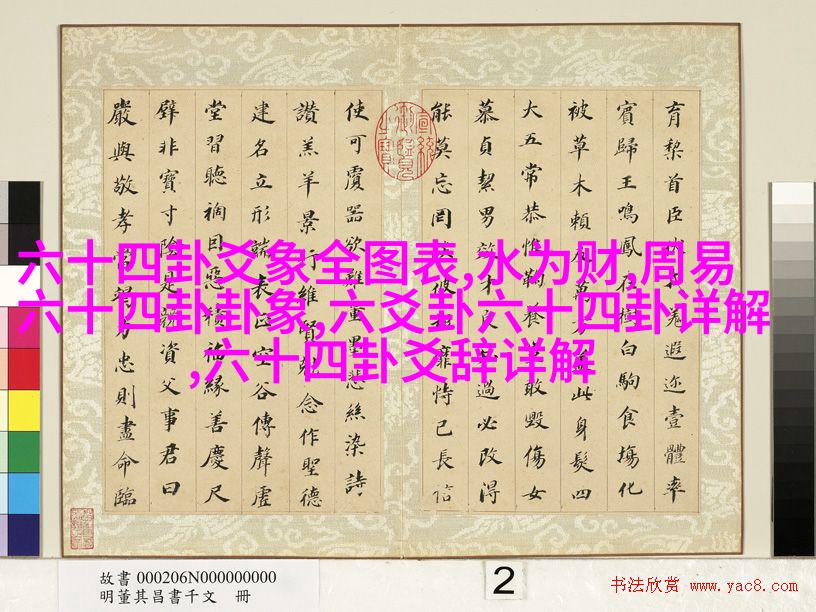 育黎首臣伏戎羌遐迩壹體率
賓歸王鳴鳳在樹白駒食場化
被草木賴及萬方蓋此身髮四
大五常恭惟鞠養豈敢毀傷女
慕貞絜男效才良知過必改得
能莫忘罔談彼短靡恃己長信
使可覆器欲難量墨悲絲染詩
讚羔羊景行維賢剋念作聖德
建名立形端表正空谷傳聲虛
堂習聽禍因惡積福緣善慶尺
璧非寶寸陰是競資父事君曰
嚴與敬孝當竭力忠則盡命臨
六十四卦爻象全图表,水为财,周易
六十四卦卦象,六爻卦六十四卦详解
,六十四卦爻辞详解
故書 000206N000000000
明董其昌書千文 冊
2
书法欣赏 www.yac8.com